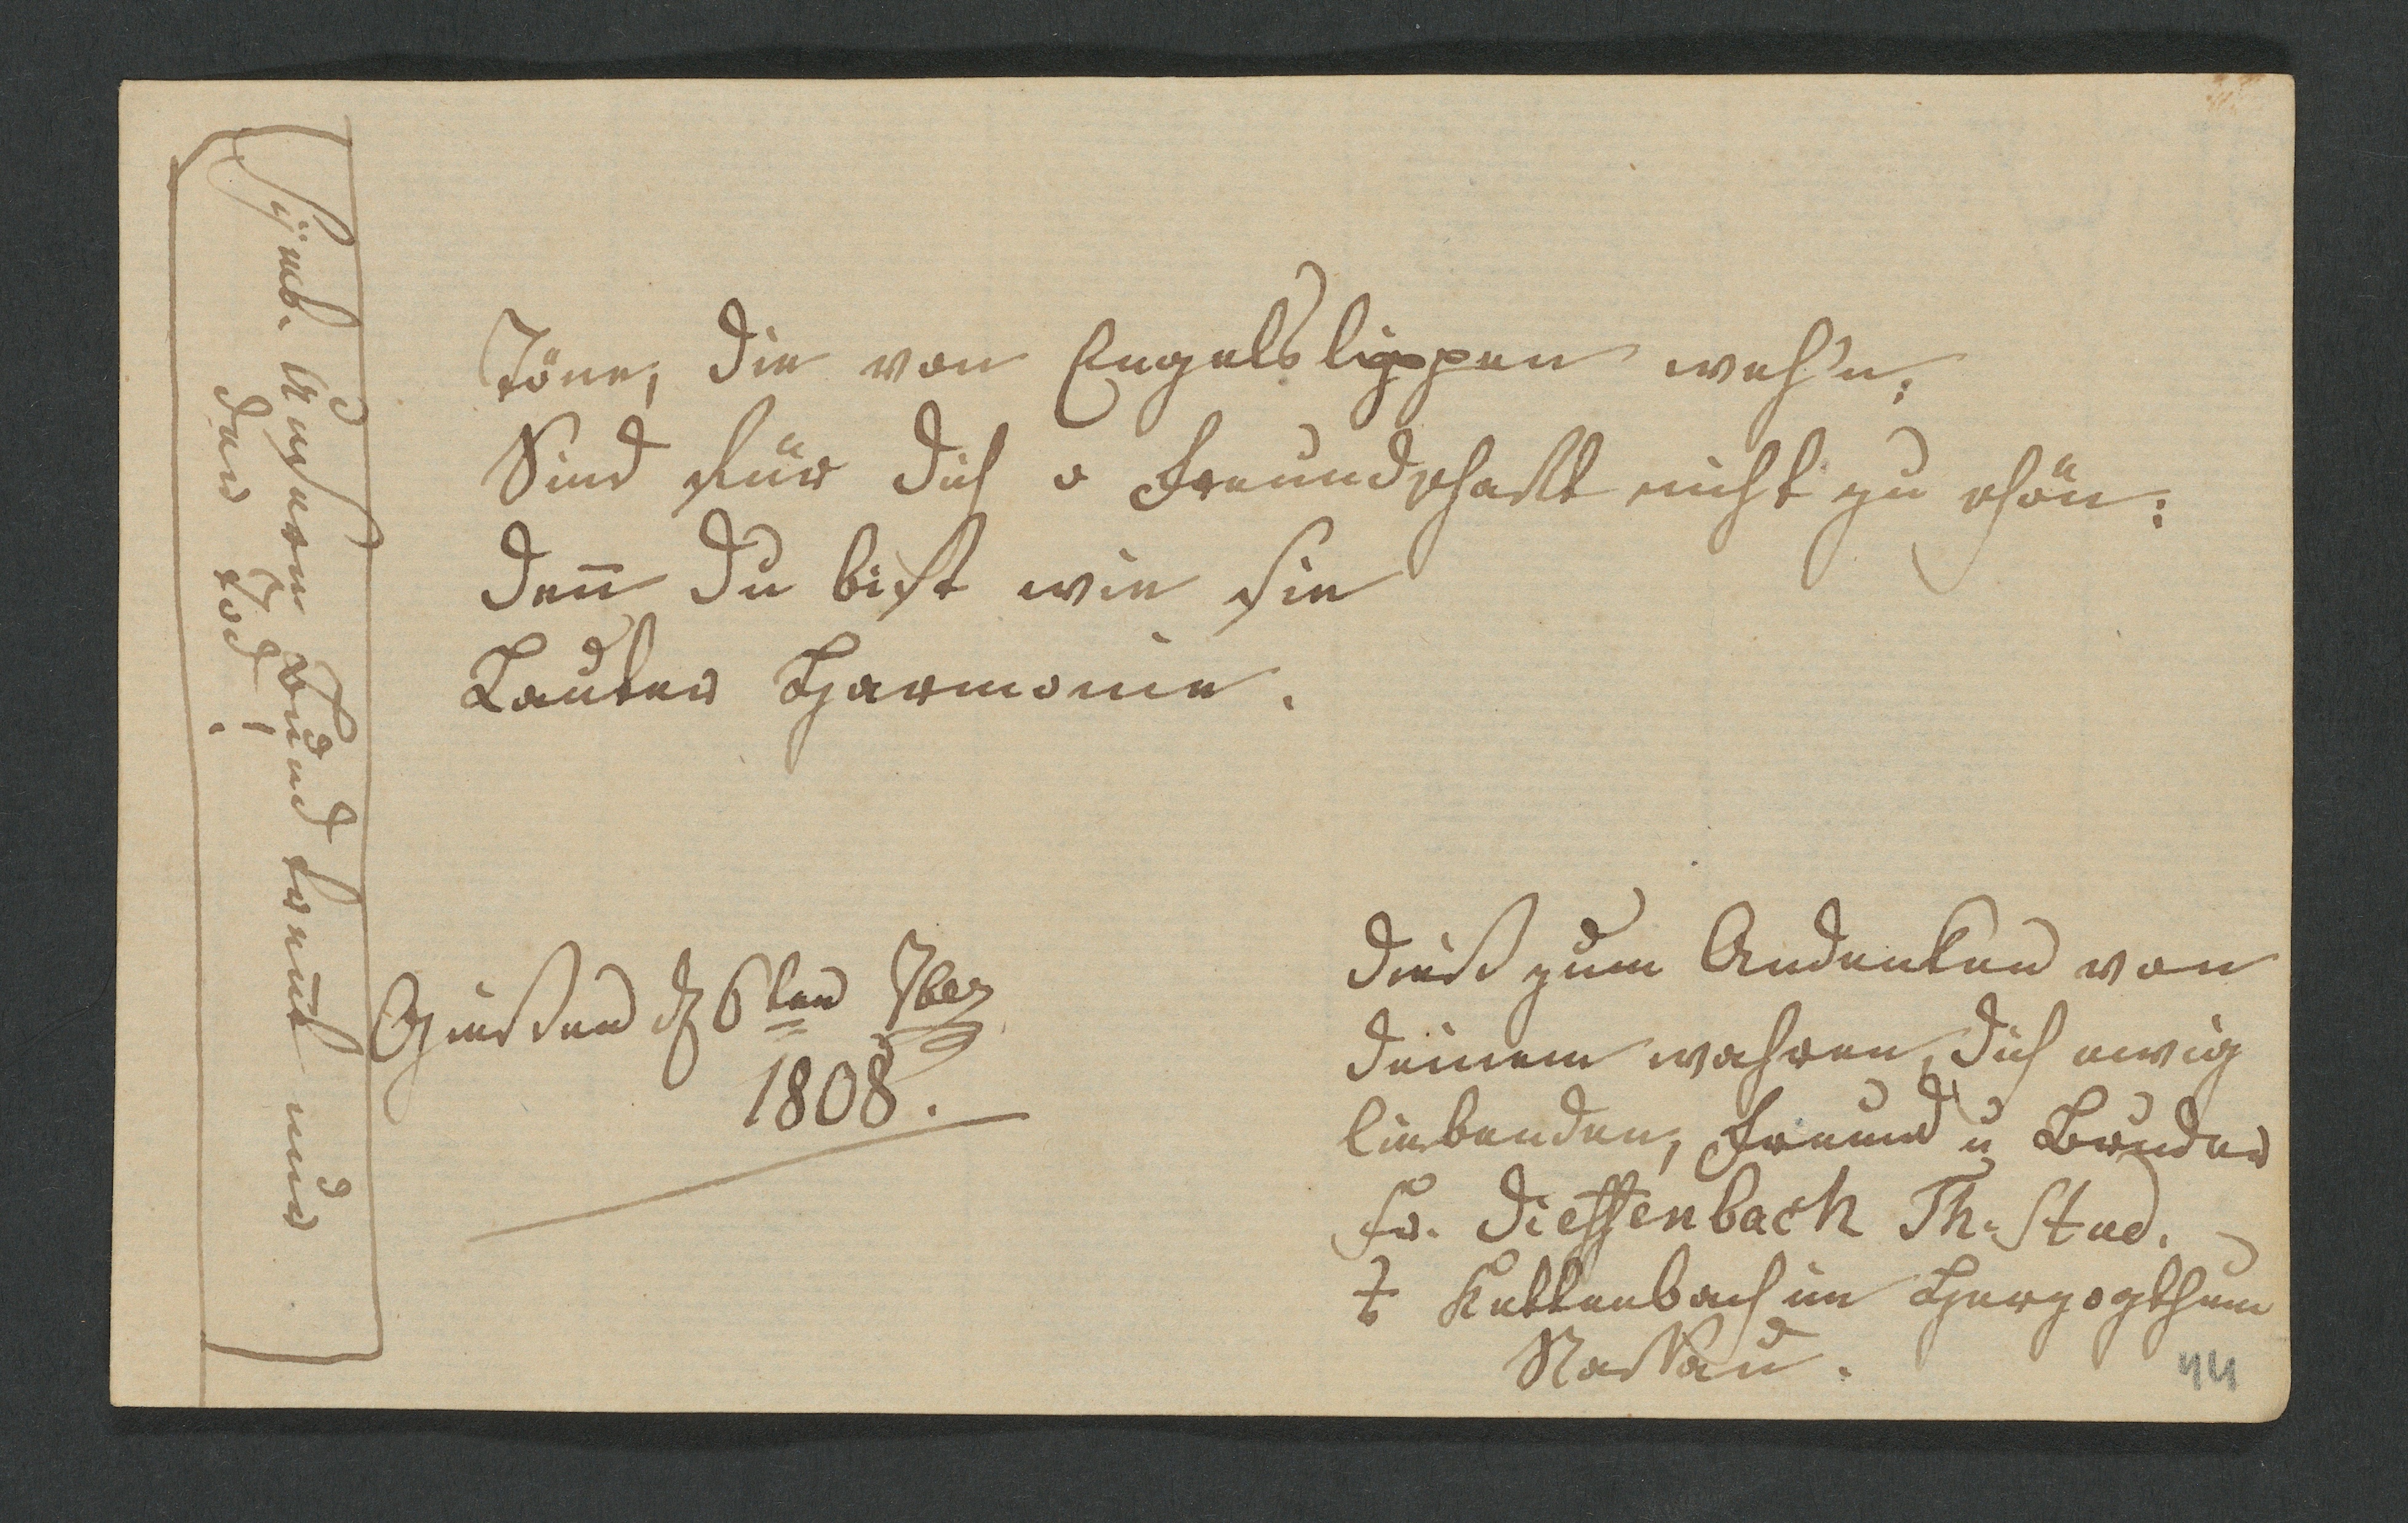 Töne, die von Engelslippen weh'n,
Sind für dich o Freundschaft nicht zu schön:
Denn du bist wie sie
Lauter Harmonie.
Giessen d 6ten 7ber
1808.
Dieß zum Andenken von
deinem wahren, dich ewig
liebenden, Freund u Bruder
Fr. Dieffenbach Th. Stud.
Kettenbach im Herzogthum
Nassau.
Symb. Unsern Bund trennt nur
der Tod!
44